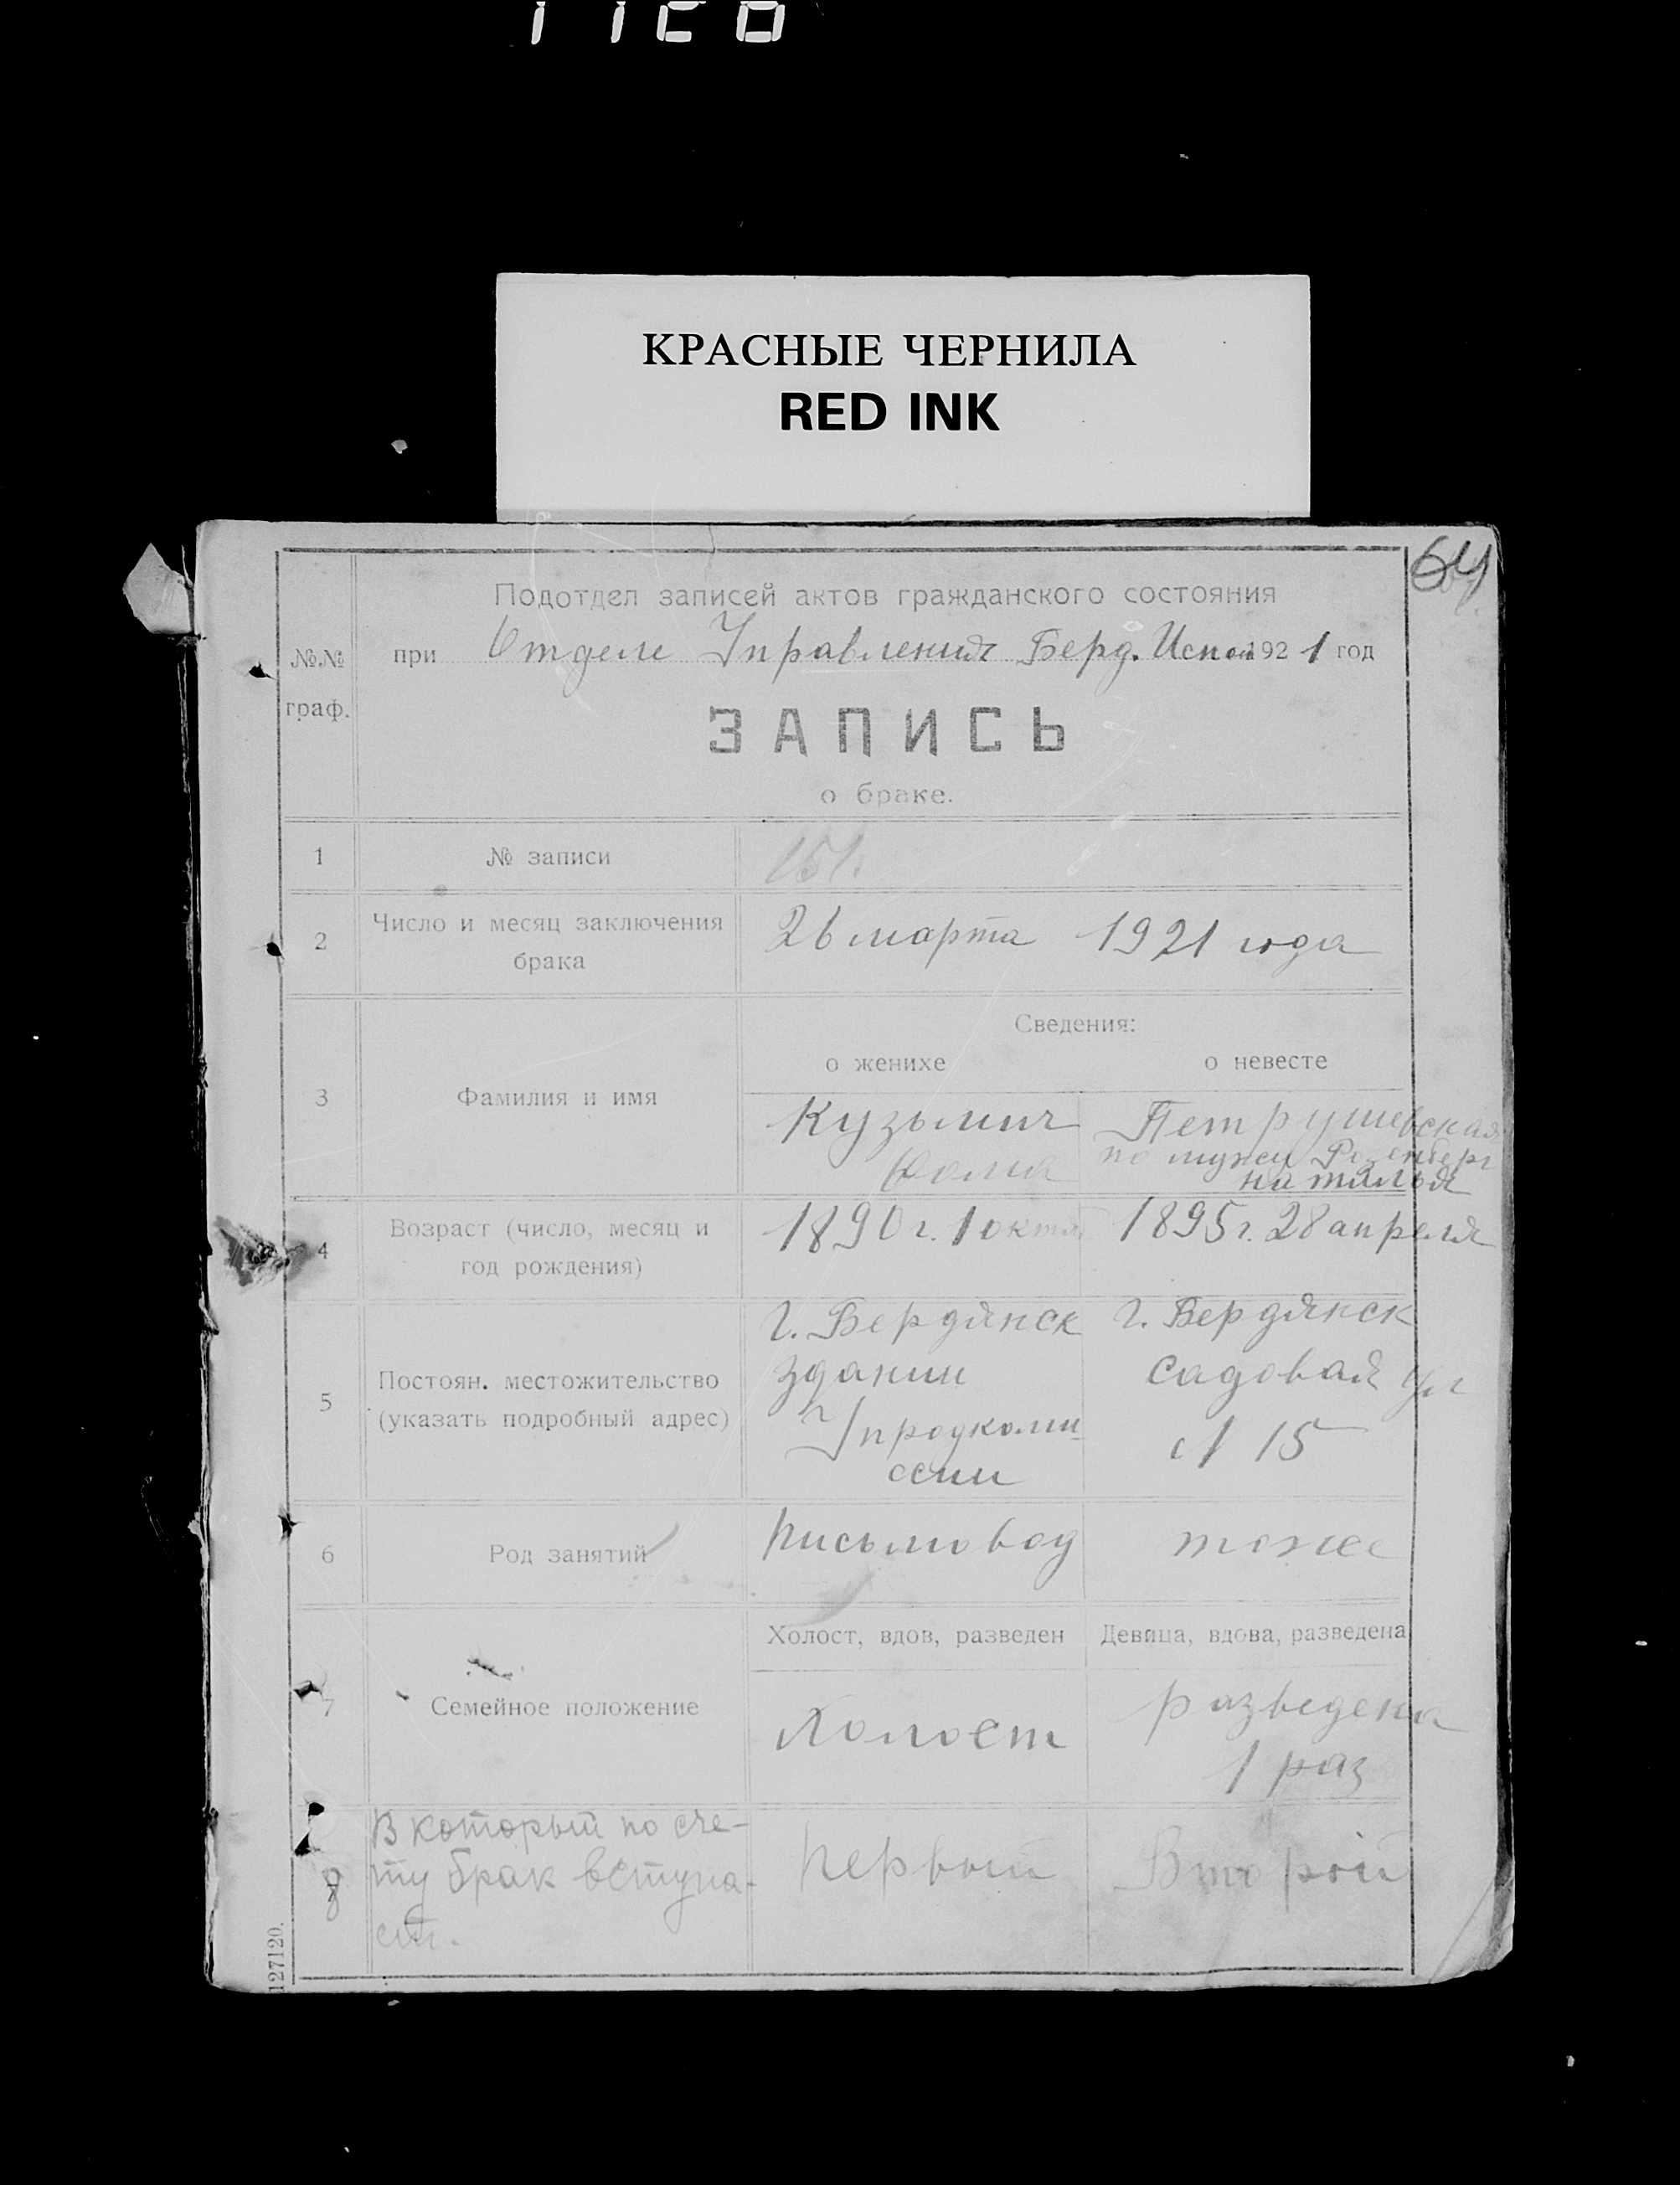 КРАСНЫЕ ЧЕРНИЛА
RED INK
64
Подотдел записей актов гражданского состояния
№№ граф.
при Отделе Управления Берд. Испол 1921 год
ЗАПИСЬ
о браке.
1 № записи 151.
2 Число и месяц заключения брака 26 марта 1921 года
Сведения:
о женихе о невесте
3 Фамилия и имя
Кузьмич
Фома
Петрушевская
по мужу Розенберг
наталья
4 Возраст (число, месяц и год рождения)
1890 г. 1 октя
1895 г. 28 апреля
5 Постоян. местожительство
(указать подробный адрес)
г. Бердянск
здании
Упродкоми
ссии
г. Бердянск
садовая ул
№ 15
6 Род занятий письмовод тоже
Холост, вдов, разведен Девица, вдова, разведена
7 Семейное положение
Холост
разведена
1 раз
8 В который по сче-
ту брак вступа-
ет.
Первый Второй
127120.